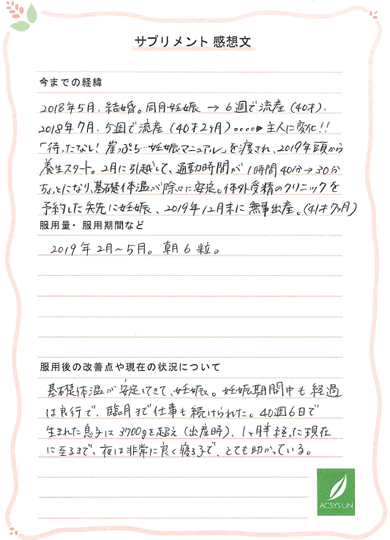 サプリメント 感想文
今までの経緯
2018年5月、結婚。同月妊娠 → 6週で流産(40才)。
2018年7月、5週で流産(40才2ヶ月)。。。。主人に変化!!
「待ったなし!崖っぷち妊娠マニュアル」を渡され、2019年頭から
養生スタート。2月に引越して、通勤時間が1時間40分→30分
ちょっとになり、基礎体温が徐々に安定。体外受精のクリニックを
予約した矢先に妊娠、2019年12月末に無事出産。(41才7ヶ月)
服用量・服用期間など
2019年2月~5月。朝6粒。
服用後の改善点や現在の状況について
基礎体温が安定してきて、妊娠。妊娠期間中も経過
は良行で、臨月まで仕事も続けられた。40週6日で
生まれた息子は3700gを超え(出産時)、1ヶ月半経った現在
に至るまで、夜は非常に良く寝る子で、とても助かっている。
ACSYSUN